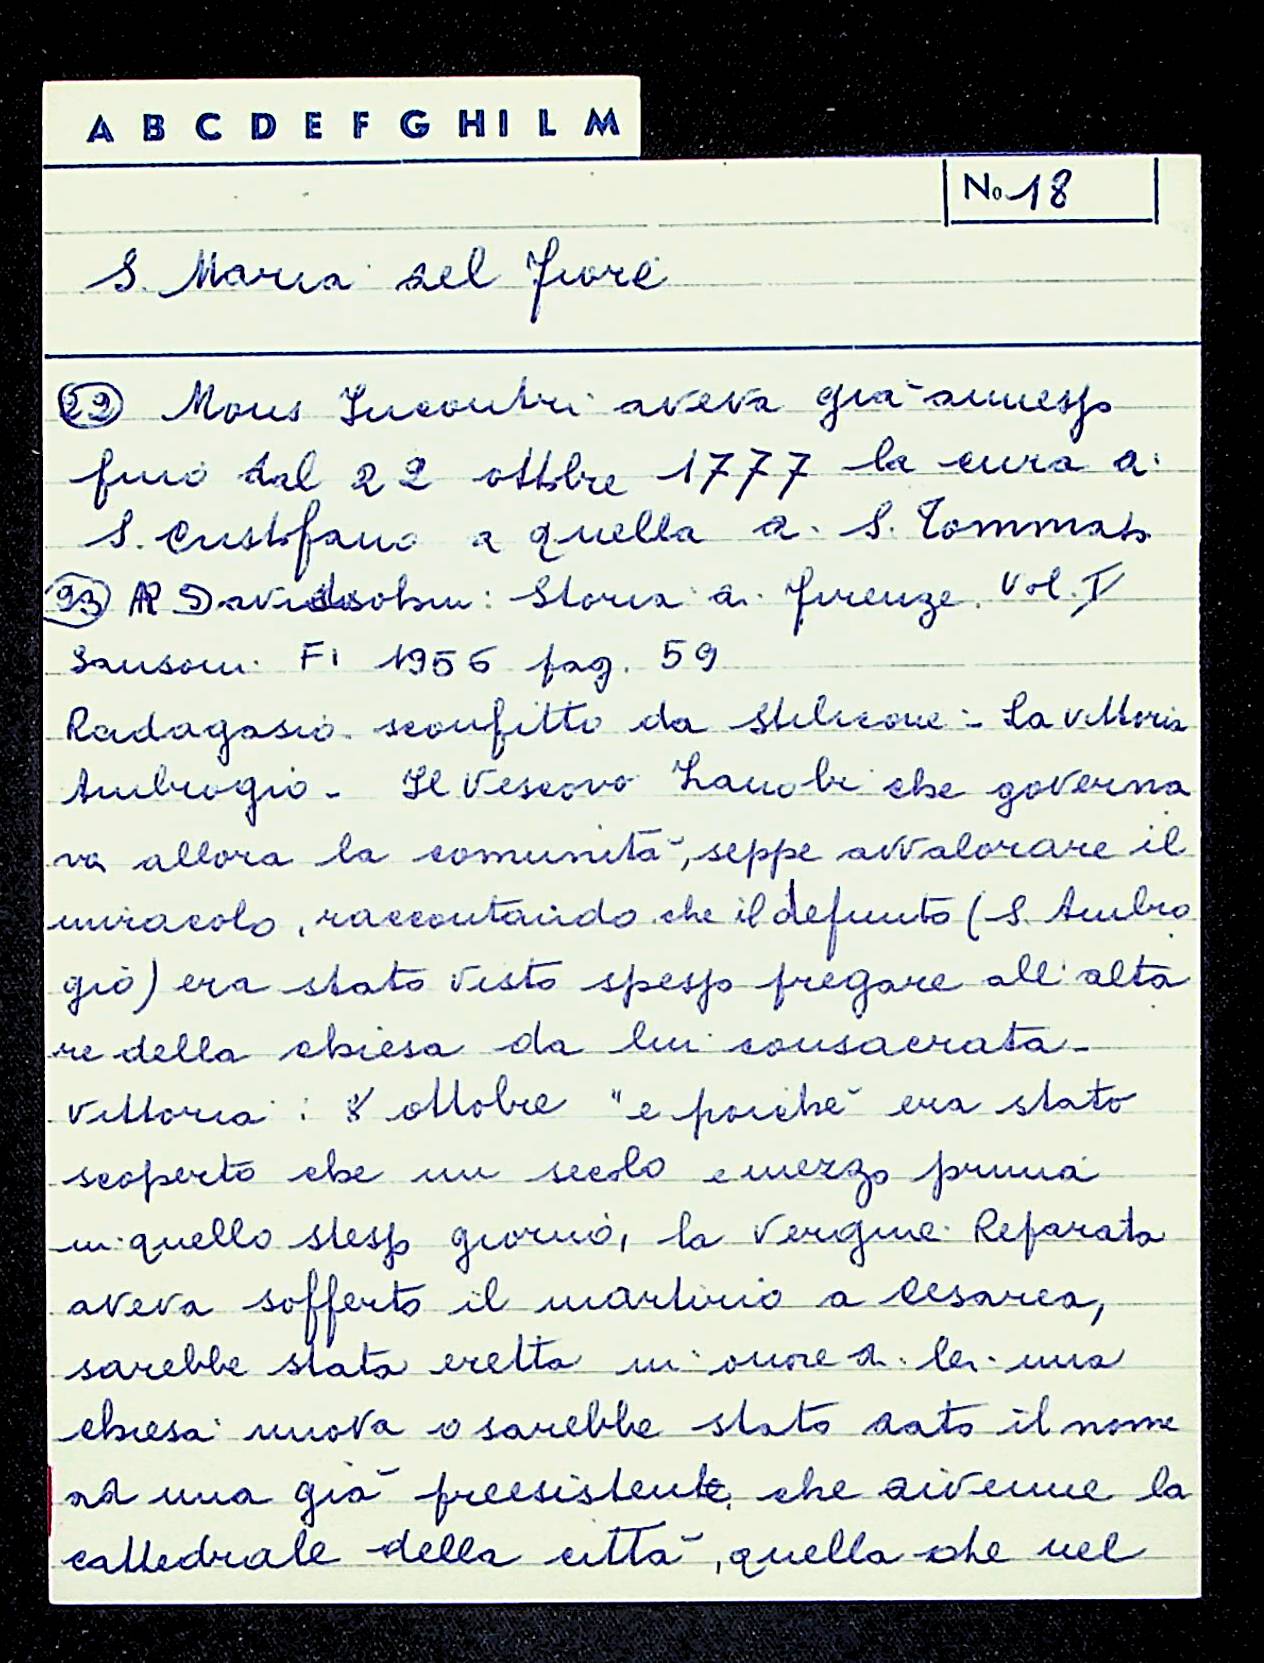 A B C D E F G H I L M
No 18
S. Maria del Fiore
22 Mons Incontri aveva già annesso
fino dal 22 ottbre 1777 la cura di
S. Cristofano a quella di S. Tommaso
23 R Davidsohn: Storia di Firenze. Vol. I
Sansoni Fi 1956 pag. 59
Radagasio sconfitto da Stilicone - La vittoria
Ambrogio - Il Vescovo Zanobi che governa
va allora la comunità, seppe avvalorare il
miracolo, raccontando che il defunto (S. Ambro
gio) era stato visto spesso pregare all'alta
re della chiesa da lui consacrata -
Vittoria : 8 ottobre "e poiché era stato
scoperto che un secolo e mezzo prima
in quello stesso giorno, la Vergine Reparata
aveva sofferto il martirio a Cesarea,
sarebbe stata eretta in onore di lei una
chiesa nuova o sarebbe stato dato il nome
ad una già preesistente, che divenne la
cattedrale della città, quella che nel